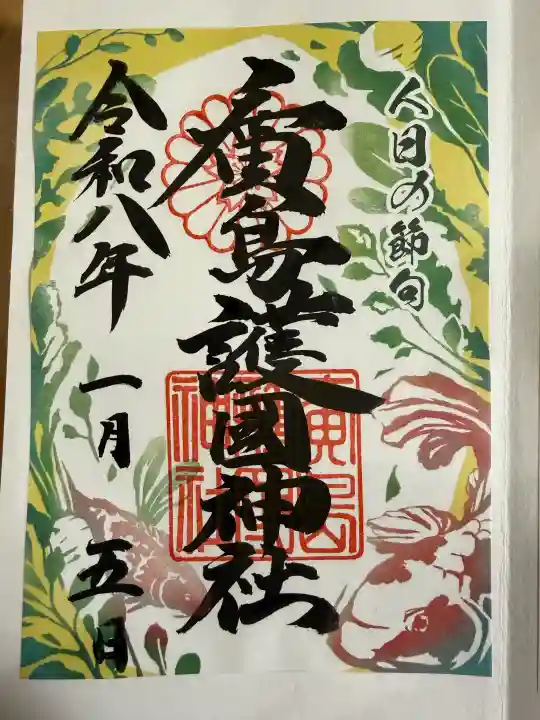 人日の節句
廣島護國神社
令和八年
一月
五日